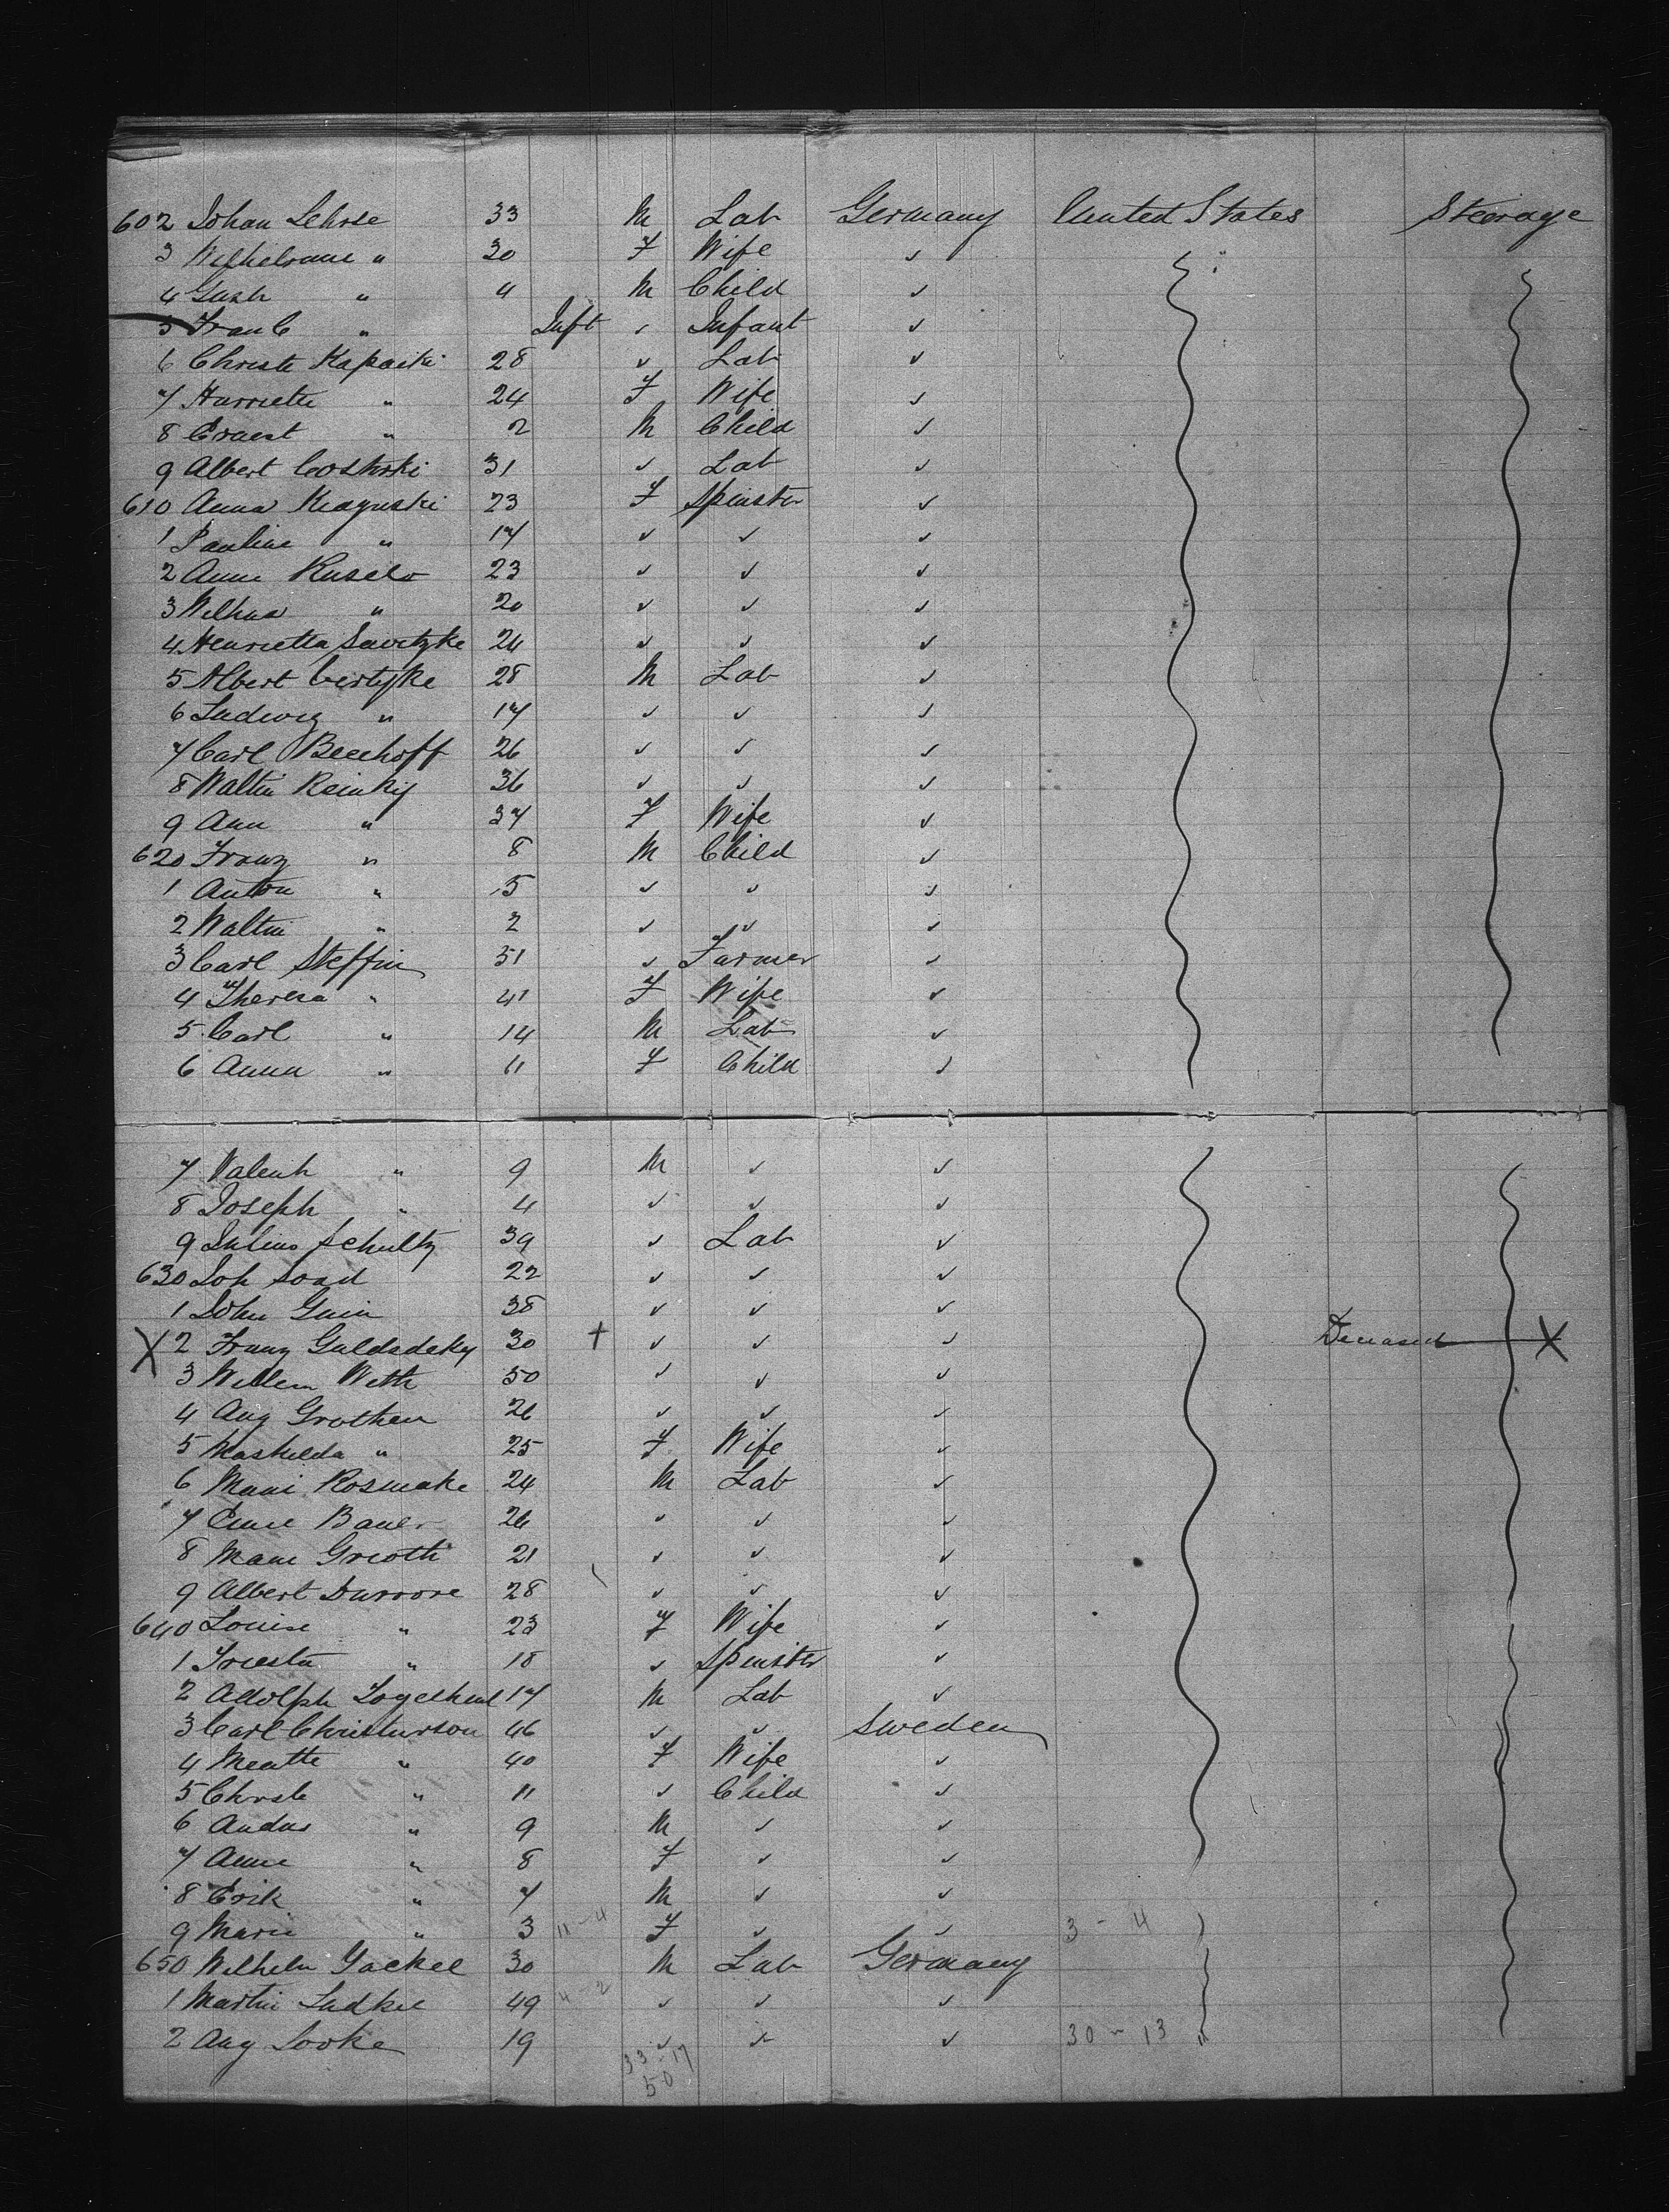 602 Johan Lehrse 33 M Lab Germany United States Steerage
3 Wilhelmine " 30 F Wife ✓
4 Gush " 4 M Child ✓
5 Franc " Inft ✓ Infant ✓
6 Christe Kapacski 28 ✓ Lab ✓
7 Harriette " 24 F Wife ✓
8 Ernest " 2 M Child ✓
9 Albert 31 ✓ Lab ✓
610 Anna 23 F Spinster ✓
1 Pauline " 17 ✓ ✓ ✓
2 Anna Ruselo 23 ✓ ✓ ✓
3 Welhna " 20 ✓ ✓ ✓
4 Henrietta Savitzke 24 ✓ ✓ ✓
5 Albert 28 M Lab ✓
6 Ludwig " 17 ✓ ✓ ✓
7 Carl Beechoff 26 ✓ ✓ ✓
8 Waltin Reinkiy 36 ✓ ✓ ✓
9 Ann " 37 F Wife ✓
620 Franz " 8 M Child ✓
1 Anton " 5 ✓ ✓ ✓
2 Waltin " 2 ✓ ✓ ✓
3 Carl Steffin 51 ✓ Farmer ✓
4 Theresa " 41 F Wife ✓
5 Carl " 14 M Lab ✓
6 Anna " 11 F Child ✓
7 Valent " 9 M ✓ ✓
8 Joseph " 4 ✓ ✓ ✓
9 Julius Schultz 39 ✓ Lab ✓
630 Joh Soad 22 ✓ ✓ ✓
1 John Guin 38 ✓ ✓ ✓
X 2 Franz Guldsdeky 30 † ✓ ✓ ✓ Deceased X
3 Willem Weth 50 ✓ ✓ ✓
4 Aug Grothen 26 ✓ ✓ ✓
5 Mashilda " 25 F Wife ✓
6 Mani Rosmake 24 M Lab ✓
7 Emil Bauer 26 ✓ ✓ ✓
8 Mani Grioth 21 ✓ ✓ ✓
9 Albert Durrore 28 ✓ ✓ ✓
640 Louise " 23 F Wife ✓
1 Friesta " 18 ✓ Spinster ✓
2 Adolph 17 M Lab ✓
3 Carl Christurson 46 ✓ ✓ Sweden
4 Meatte " 40 F Wife ✓
5 Christe " 11 ✓ Child ✓
6 Andus " 9 M ✓ ✓
7 Anne " 8 F ✓ ✓
8 Erik " 7 M ✓ ✓
9 Marie " 3 11-4 F ✓ ✓ 3-4
650 Wilhelm Jackel 30 M Lab Germany
1 Martin Ludkie 49 4-2 ✓ ✓ ✓
2 Aug Sooke 19 ✓ ✓ ✓ 30-13 "
33-17
50